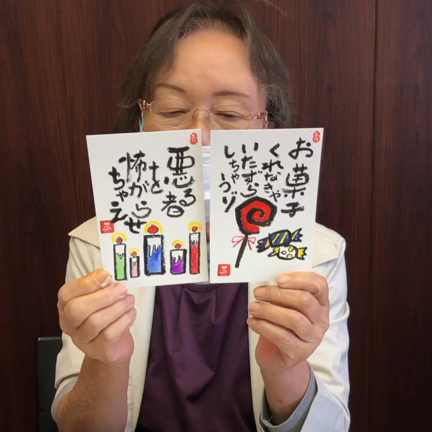 お菓子
くれなきゃ
いたずら
しちゃうゾ
悪る者
怖がらせ
ちゃえ